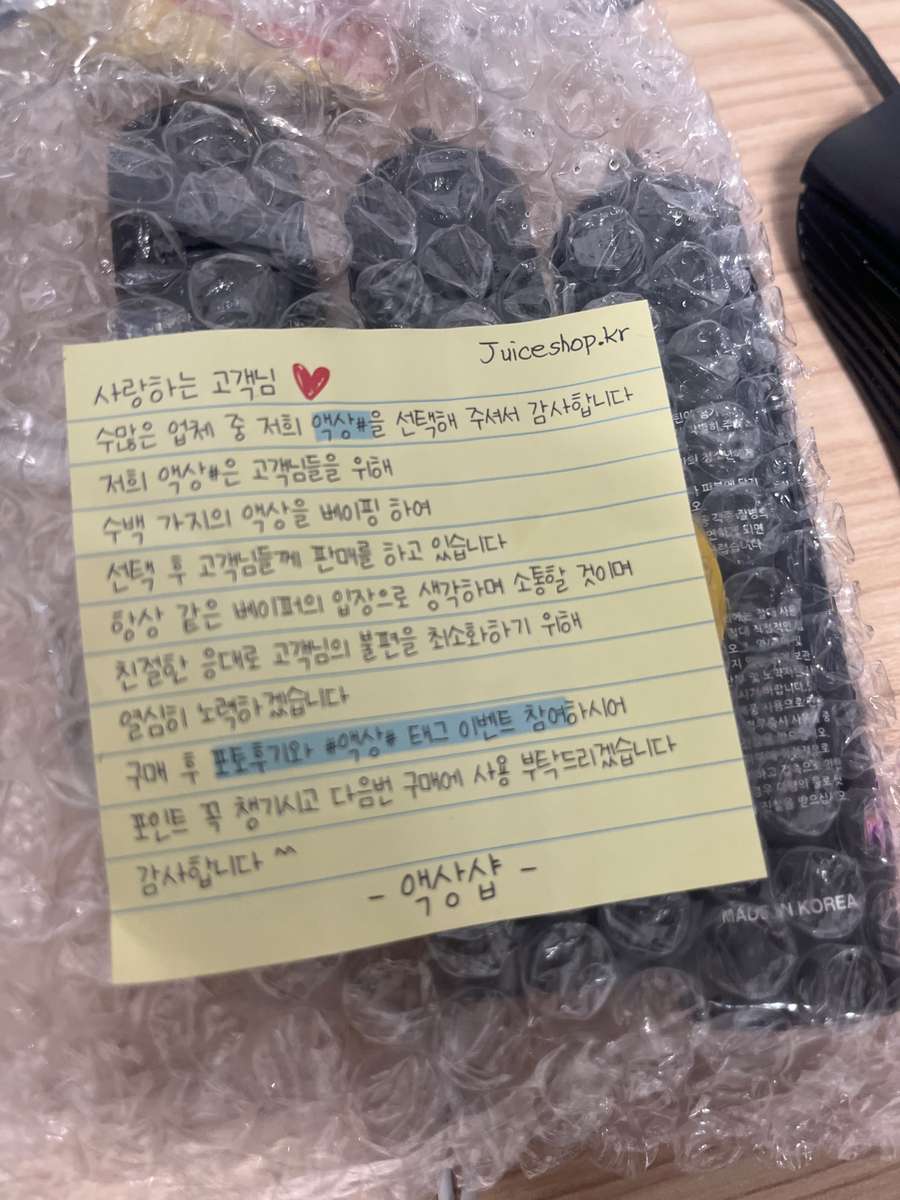 Juiceshop.kr
사랑하는 고객님
수많은 업체 중 저희 액상#을 선택해 주셔서 감사합니다
저희 액상#은 고객님들을 위해
수백 가지의 액상을 베이핑 하여
선택 후 고객님들께 판매를 하고 있습니다
항상 같은 베이퍼의 입장으로 생각하며 소통할 것이며
친절한 응대로 고객님의 불편을 최소화하기 위해
열심히 노력하겠습니다
구매 후 포토후기와 #액상# 태그 이벤트 참여하시어
포인트 꼭 챙기시고 다음번 구매에 사용 부탁드리겠습니다
감사합니다 ^^
- 액상샵 -
MADE IN KOREA